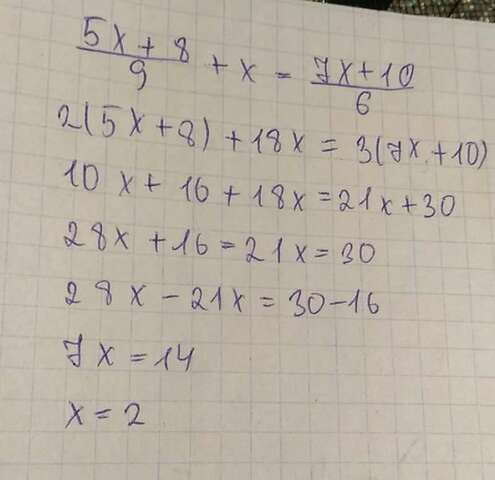 (5x + 8)/9 + x = (7x + 10)/6
2(5x + 8) + 18x = 3(7x + 10)
10x + 16 + 18x = 21x + 30
28x + 16 = 21x = 30
28x - 21x = 30 - 16
7x = 14
x = 2